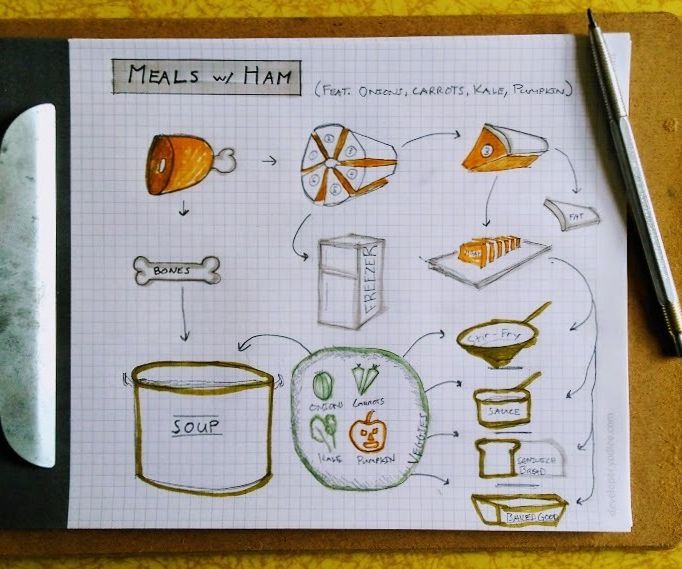 MEALS W/ HAM
(FEAT. ONIONS, CARROTS, KALE, PUMPKIN)
1
2
3
FAT
BONES
FREEZER
STIR-FRY
SOUP
ONIONS
CARROTS
KALE
PUMPKIN
VEGGIES
SAUCE
SANDWICH
BREAD
BAKED GOOD